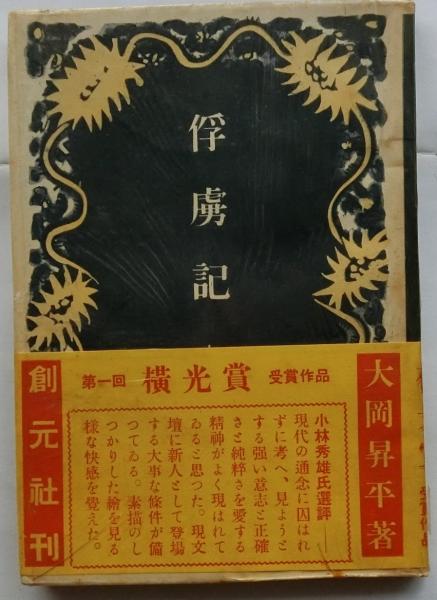 俘虜記
第一回 横光賞 受賞作品
大岡昇平著
小林秀雄氏選評―
現代の通念に囚はれ
ずに考へ、見ようと
する强い意志と正確
さと純粹さを愛する
精神がよく現はれて
ゐると思つた。現文
壇に新人として登場
する大事な條件が備
つてゐる。素描のし
つかりした繪を見る
様な快感を覺えた。
創元社刊